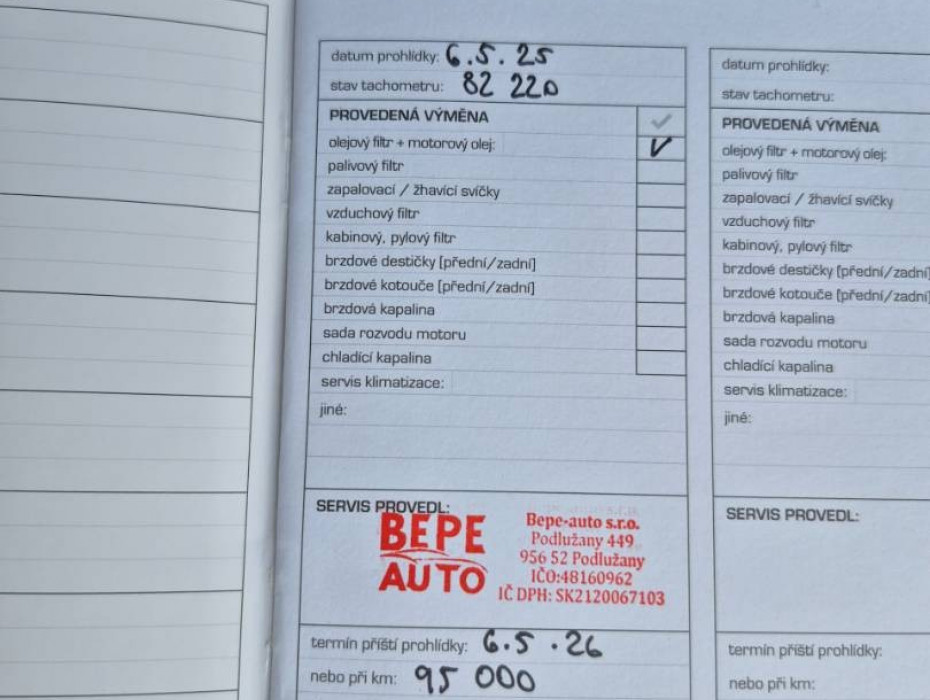 datum prohlídky: 6.5.25
stav tachometru: 82 220
PROVEDENÁ VÝMĚNA
olejový filtr + motorový olej:
palivový filtr
zapalovací / žhavící svíčky
vzduchový filtr
kabinový, pylový filtr
brzdové destičky [přední/zadní]
brzdové kotouče [přední/zadní]
brzdová kapalina
sada rozvodu motoru
chladící kapalina
servis klimatizace:
jiné:
SERVIS PROVEDL:
BEPE
AUTO
Bepe-auto s.r.o.
Podlužany 449
956 52 Podlužany
IČO:48160962
IČ DPH: SK2120067103
termín příští prohlídky: 6.5.26
nebo při km: 95 000
datum prohlídky:
stav tachometru:
PROVEDENÁ VÝMĚNA
olejový filtr + motorový olej:
palivový filtr
zapalovací / žhavící svíčky
vzduchový filtr
kabinový, pylový filtr
brzdové destičky [přední/zadní]
brzdové kotouče [přední/zadní]
brzdová kapalina
sada rozvodu motoru
chladící kapalina
servis klimatizace:
jiné:
SERVIS PROVEDL:
termín příští prohlídky:
nebo při km: